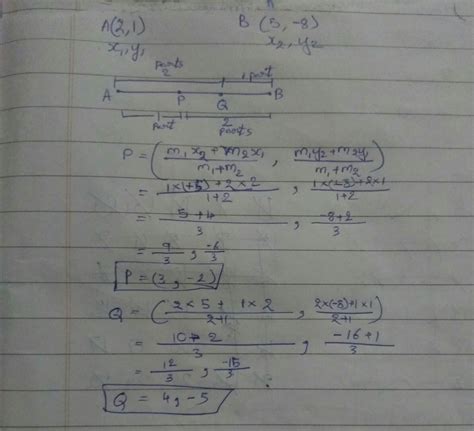 A(2,1) B (5, -8)
x₁, y₁ x₂, y₂
2 parts 1 part
A P Q B
1 part 2 parts
P = ( m₁x₂ + m₂x₁ / m₁+m₂ , m₁y₂+m₂y₁ / m₁+m₂ )
= 1×(+5)+2×2 / 1+2 , 1×(-8)+2×1 / 1+2
= 5+4 / 3 , -8+2 / 3
= 9/3 , -6/3
P = (3, -2)
Q = ( 2×5 + 1×2 / 2+1 , 2×(-8)+1×1 / 2+1 )
= 10+2 / 3 , -16+1 / 3
= 12/3 , -15/3
Q = 4, -5